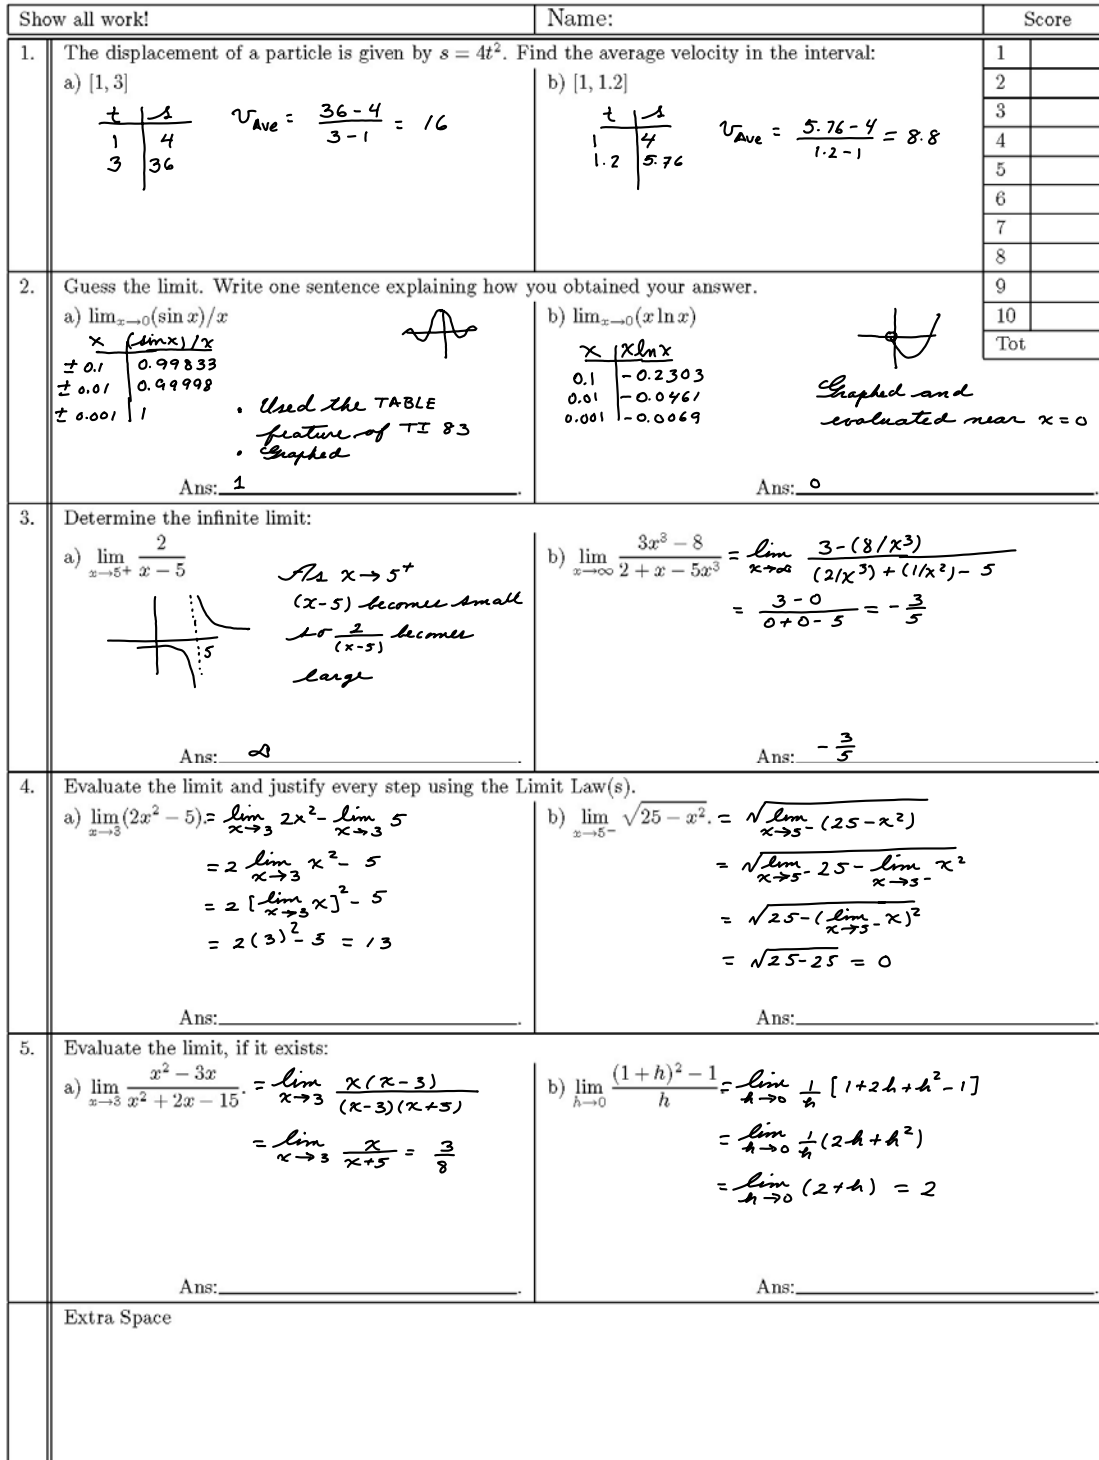 Show all work!
Name:
Score
1. The displacement of a particle is given by s = 4t². Find the average velocity in the interval:
a) [1, 3]
t | s
1 | 4
3 | 36
v_Ave = (36 - 4)/(3 - 1) = 16
b) [1, 1.2]
t | s
1 | 4
1.2 | 5.76
v_Ave = (5.76 - 4)/(1.2 - 1) = 8.8
1
2
3
4
5
6
7
8
9
10
Tot
2. Guess the limit. Write one sentence explaining how you obtained your answer.
a) lim_{x→0}(sin x)/x
x | (sinx)/x
± 0.1 | 0.99833
± 0.01 | 0.99998
± 0.001 | 1
• Used the TABLE
feature of TI 83
• Graphed
Ans: 1.
b) lim_{x→0}(x ln x)
x | xlnx
0.1 | -0.2303
0.01 | -0.0461
0.001 | -0.0069
Graphed and
evaluated near x = 0
Ans: 0.
3. Determine the infinite limit:
a) lim_{x→5+} 2/(x - 5)
5
As x → 5⁺
(x-5) becomes small
so 2/(x-5) becomes
large
Ans: ∞.
b) lim_{x→∞} (3x³ - 8)/(2 + x - 5x³) = lim_{x→∞} (3-(8/x³))/((2/x³)+(1/x²)-5)
= (3-0)/(0+0-5) = -3/5
Ans: -3/5.
4. Evaluate the limit and justify every step using the Limit Law(s).
a) lim_{x→3}(2x² - 5). = lim_{x→3} 2x² - lim_{x→3} 5
= 2 lim_{x→3} x² - 5
= 2 [lim_{x→3} x]² - 5
= 2(3)² - 5 = 13
Ans:.
b) lim_{x→5-} √(25 - x²). = √(lim_{x→5-} (25-x²))
= √(lim_{x→5-} 25 - lim_{x→5-} x²)
= √(25-(lim_{x→5-} x)²)
= √(25-25) = 0
Ans:.
5. Evaluate the limit, if it exists:
a) lim_{x→3} (x² - 3x)/(x² + 2x - 15). = lim_{x→3} x(x-3)/((x-3)(x+5))
= lim_{x→3} x/(x+5) = 3/8
Ans:.
b) lim_{h→0} ((1 + h)² - 1)/h = lim_{h→0} 1/h [1+2h+h²-1]
= lim_{h→0} 1/h (2h+h²)
= lim_{h→0} (2+h) = 2
Ans:.
Extra Space